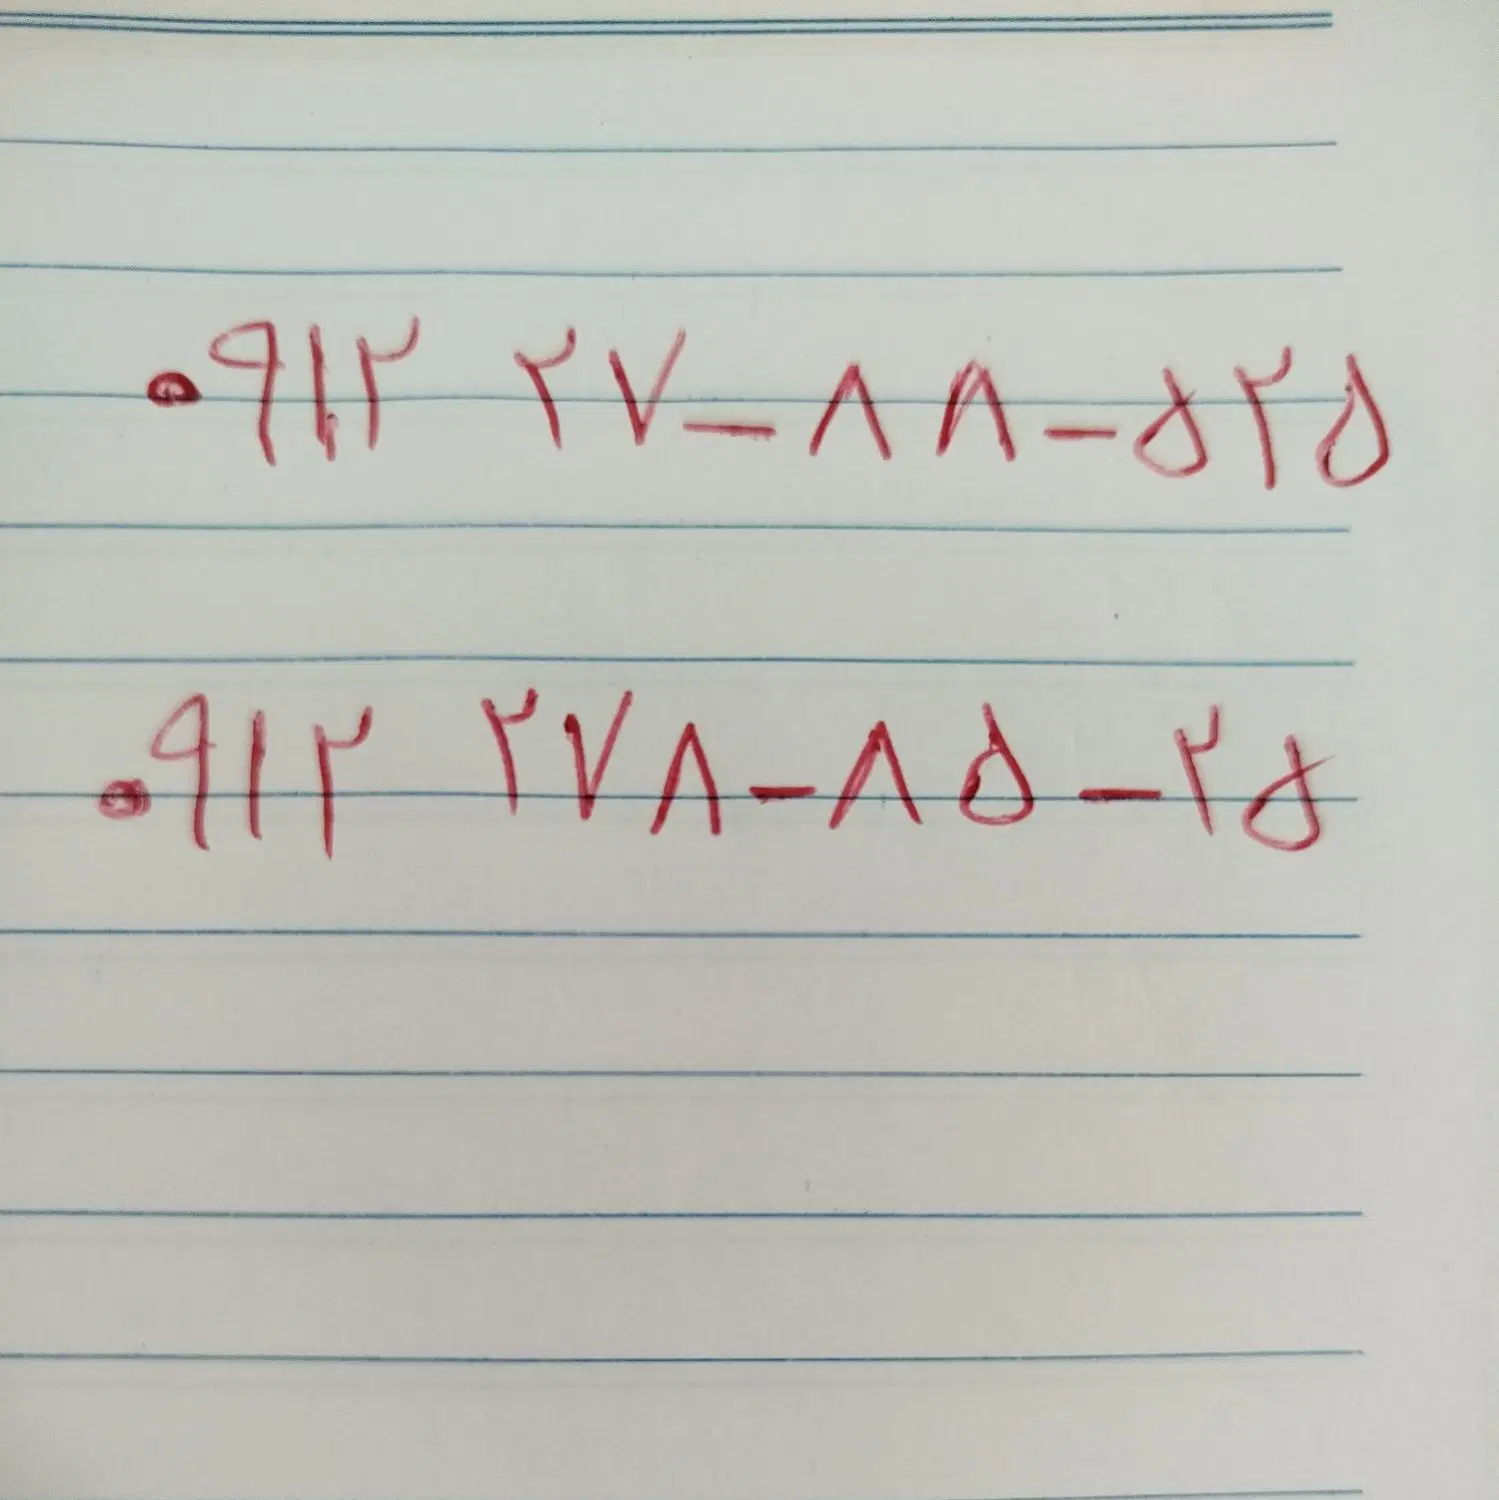 ۰۹۱۲ ۲۷-۸۸-۵۲۵
۰۹۱۲ ۲۷۸-۸۵-۲۵